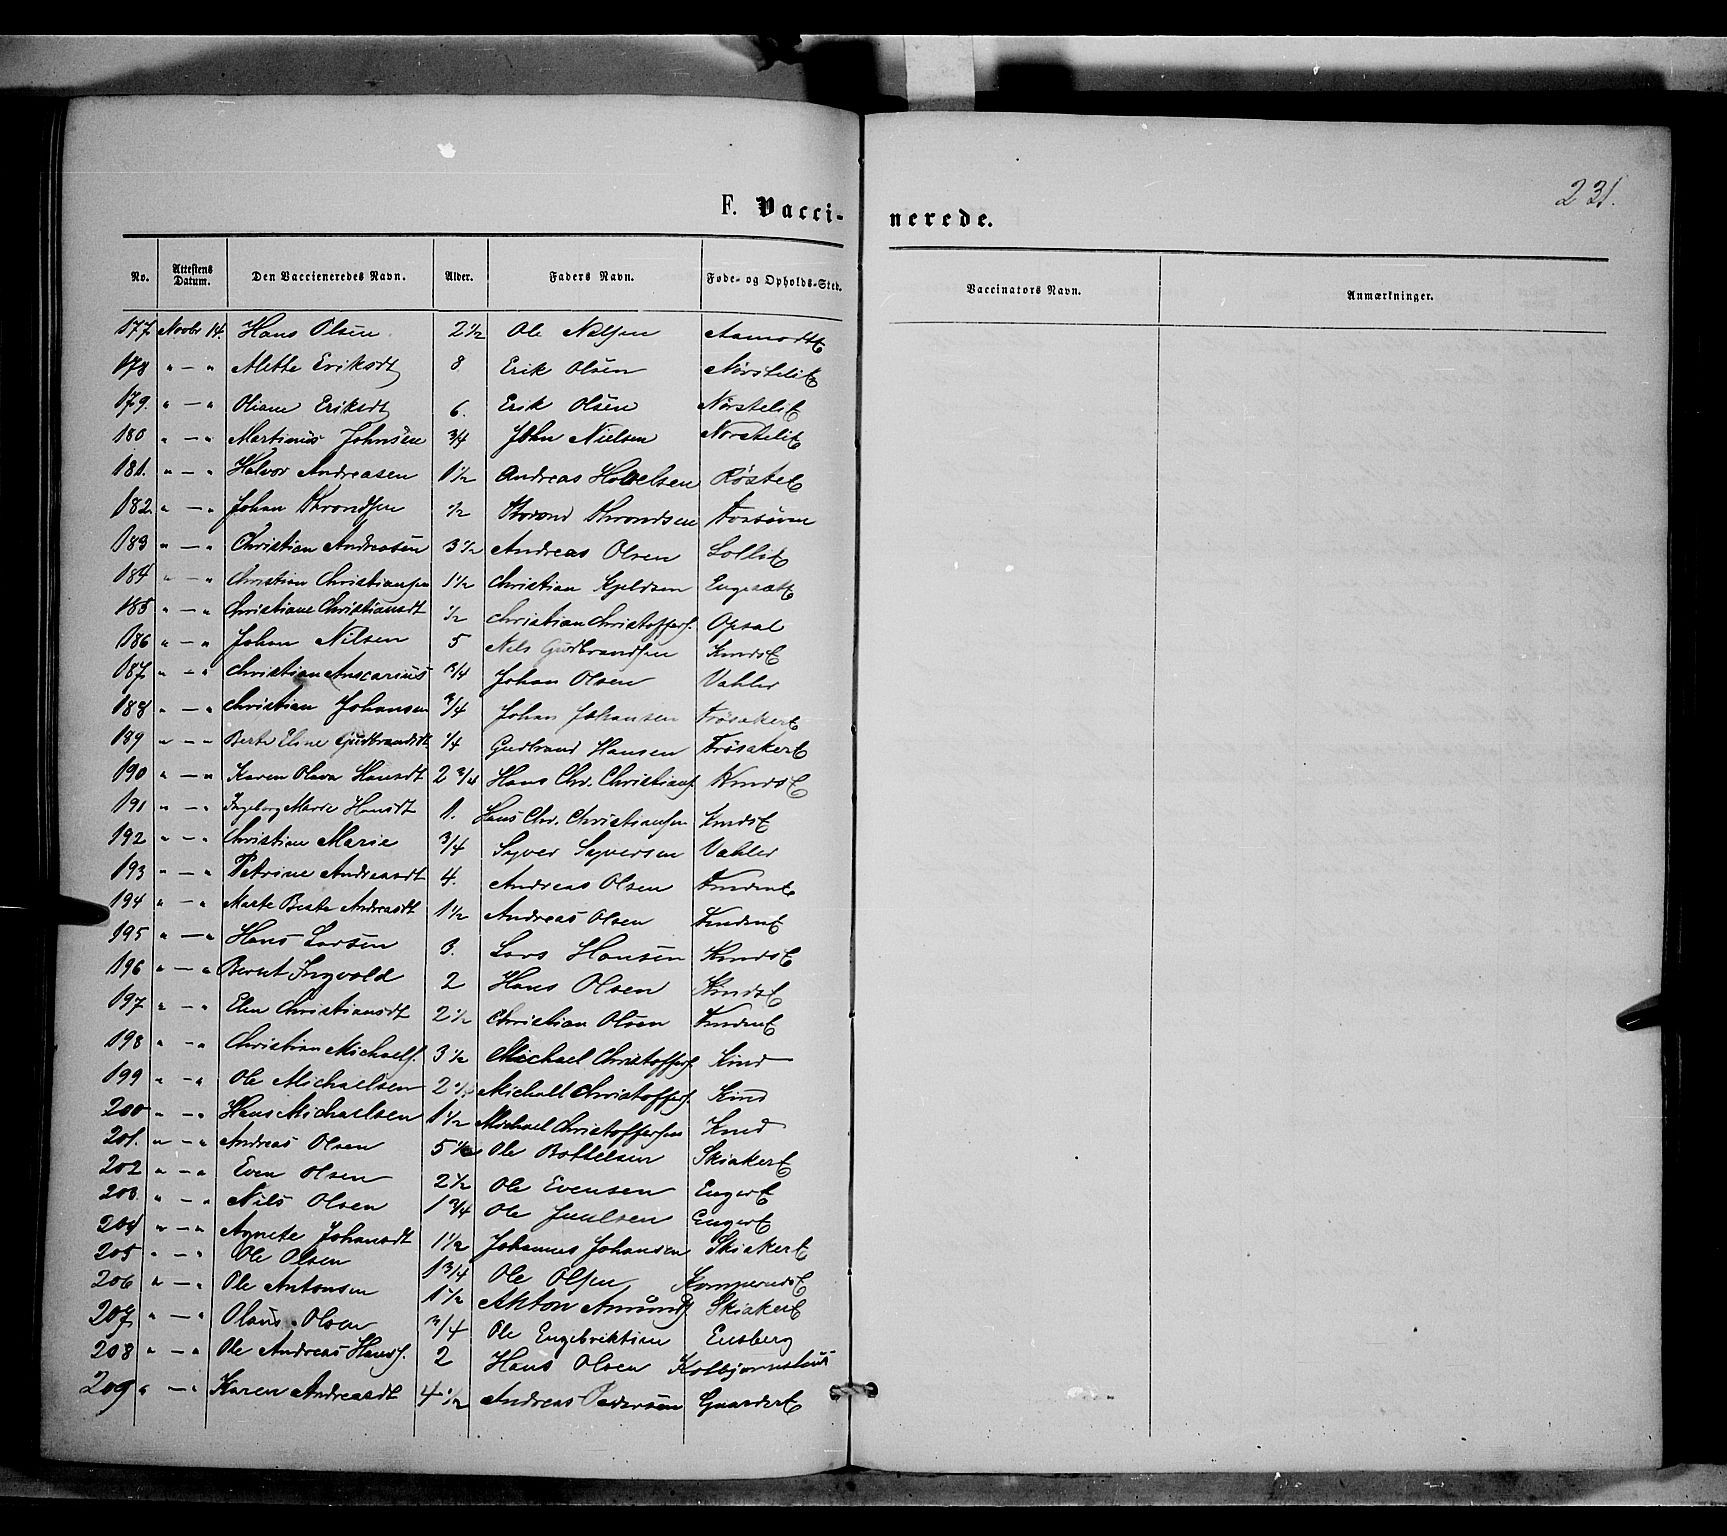 231.
F. Vacci- nerede.
No. Attestens Datum. Den Vaccieneredes Navn. Alder. Faders Navn. Føde- og Opholds-Sted. Vaccinators Navn. Anmærkninger.
177 Novbr 14. Hans Olsen 2 1/2 Ole Nelsen Aamodt
178 " — " Alette Eriksdt 8 Erik Olsen Nørstelit
179. " — " Oliane Eriksdt 6. Erik Olsen Nørstelit
180 " — " Martinus Johnsen 3/4 John Nielsen Norstelit
181. " — " Halvor Andreasen 1 1/2 Andreas Røste
182. " — " Johan Throndsen 1/2 Thrond Throndsen
183 " — " Christian Andreasen 3 1/2 Andreas Olsen Sollit
184 " — " Christian Christiansen 1 1/2 Christian Kjeldsen Engesæt
185 " — " Christiane Christiansdt 1/2 Christian Christoffers. Opsal
186 " — " Johan Nilsen 5 Nils Gudbrandsen
187 " — " Christian Anscarius 3/4 Johan Olsen Vahler
188 " — " Christian Johansen 3/4 Johan Johansen Frøsaker
189 " — " Berte Eline Gudbrandsdt 1/4 Gudbrand Hansen Frøsaker
190 " — " Karen Olava Hansdt 2 3/4 Hans Chr. Christians.
191 " — " Ingeborg Marie Hansdt 1. Hans Chr. Christiansen
192 " — " Christian Marie 3/4 Syver Syversen Vahler
193 " — " Petrine Andreasdt 4. Andreas Olsen
194 " — " Marte Beate Andreasdt 1 1/2 Andreas Olsen
195 " — " Hans Larsen 3. Lars Hansen
196 " — " Bernt Ingvald 2 Hans Olsen
197 " — " Elen Christiansdt 2 1/2 Christian Olsen
198 " — " Christian Michaels. 3 1/2 Michael Christoffers. Kind
199 " — " Ole Michaelsen 2 1/2 Michael Christoffers. Kind
200 " — " Hans Michaelsen 1 1/2 Michael Christoffersen Kind
201. " — " Andreas Olsen 5 1/2 Ole Bottelsen Skiaker
202 " — " Even Olsen 2 1/2 Ole Evensen Enger
203. " — " Nils Olsen 1 3/4 Ole Juulsen Enger
204 " — " Agnete Johansdt 1 1/2 Johannes Johansen Skiaker
205 " — " Ole Olsen 1 3/4 Ole Olsen
206 " — " Ole Antonsen 1 1/2 Anton Amunds. Skiaker
207 " — " Olaus Olsen 3/4 Ole Engebriktsen Ensberg
208 " — " Ole Andreas Hans. 2 Hans Olsen Kolbjørnshus
209 " — " Karen Andreasdt 4 1/2 Andreas Pedersen Gaarder